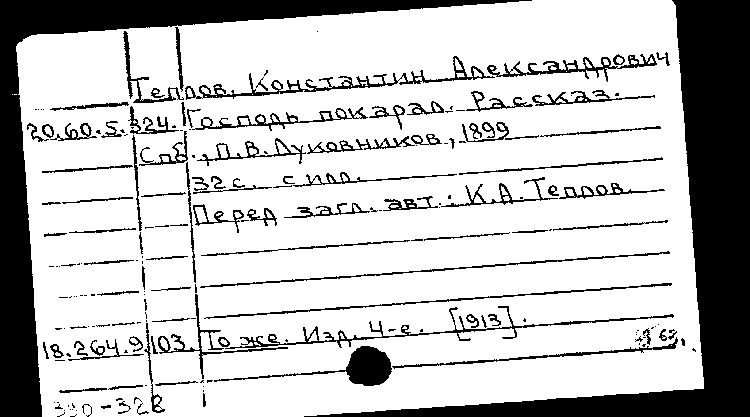 Теплов, Константин Александрович
20.60.5.324. Господь покарал. Рассказ.
Спб., П.В.Луковников, 1899
32 с. с илл.
Перед загл. авт.: К.А.Теплов.
18.264.9.103. То же. Изд. 4-е. [1913].
330-328